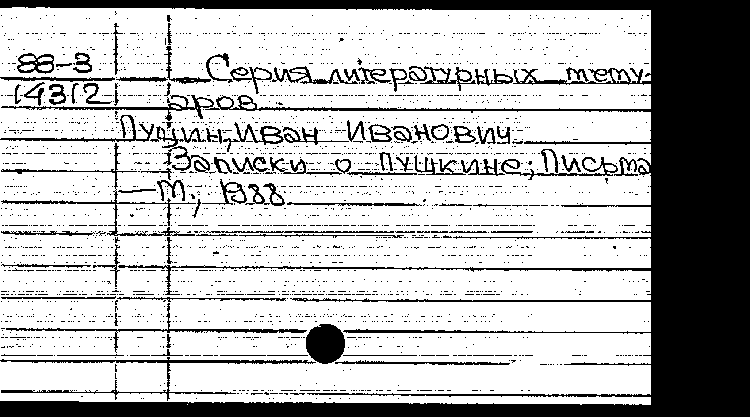 88-3 Серия литературных мему-
14312 аров
Пущин, Иван Иванович
Записки о Пушкине; Письма
— М., 1988